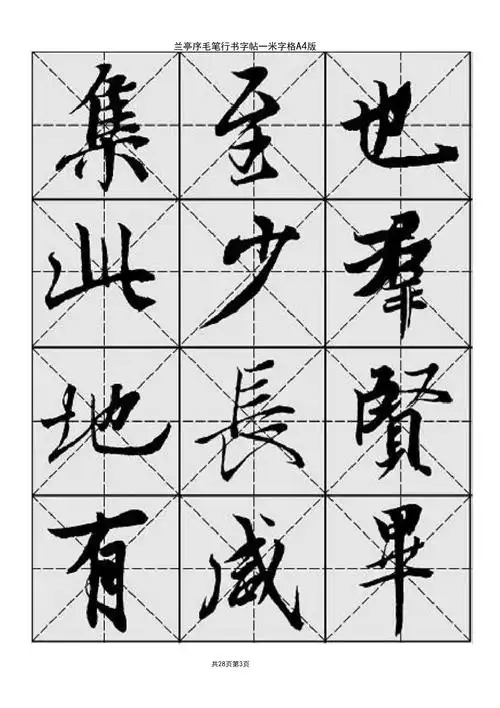 兰亭序毛笔行书字帖一米字格A4版
也羣賢畢
至少長咸
集此地有
共28页第3页